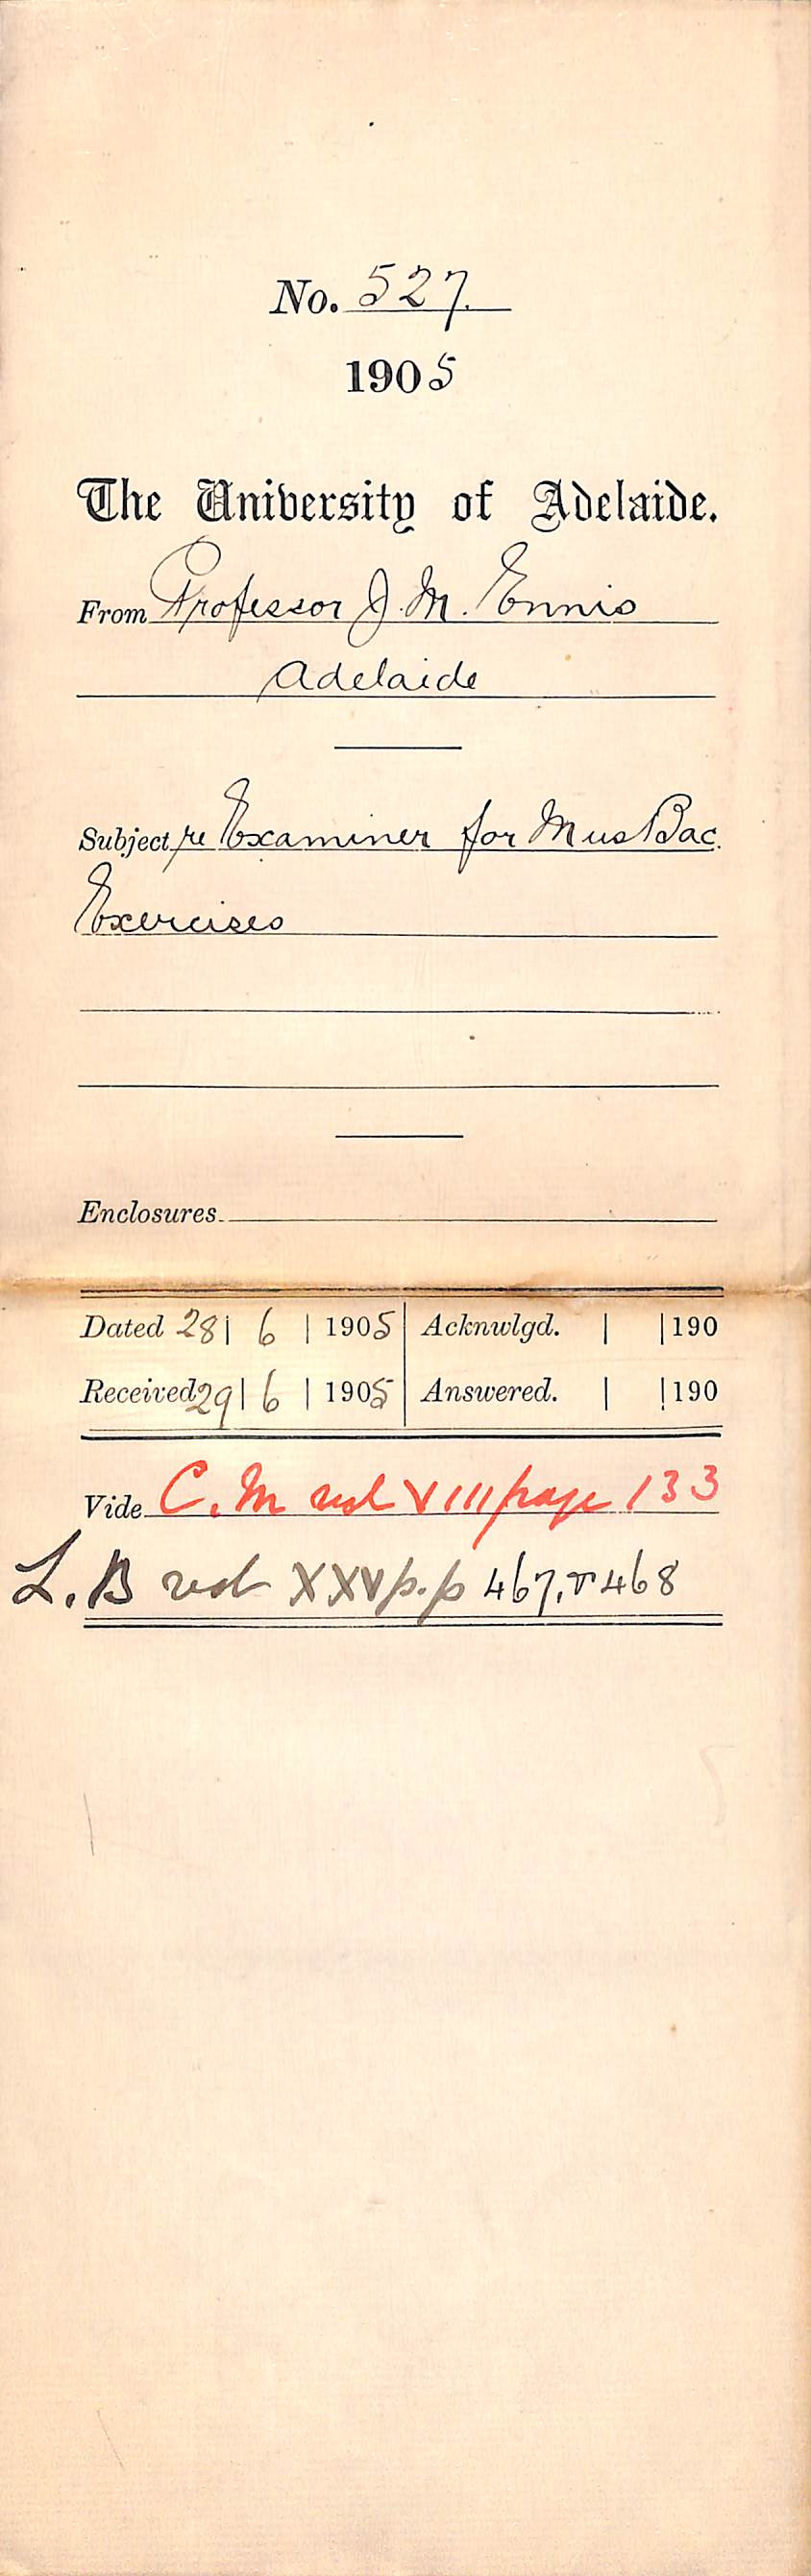 No. 527.
1905
The University of Adelaide.
From Professor J. M. Ennis
Adelaide
Subject re Examiner for Mus Bac.
Exercises
Enclosures
Dated 28 | 6 | 1905 | Acknwlgd. | | 190
Received 29 | 6 | 1905 | Answered. | | 190
Vide C. M vol VIII page 133
L. B vol XXV p.p 467, & 468